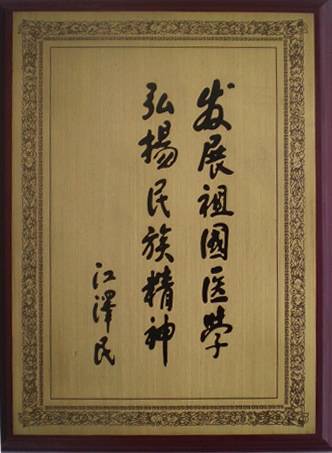 发展祖國医学
弘揚民族精神
江泽民